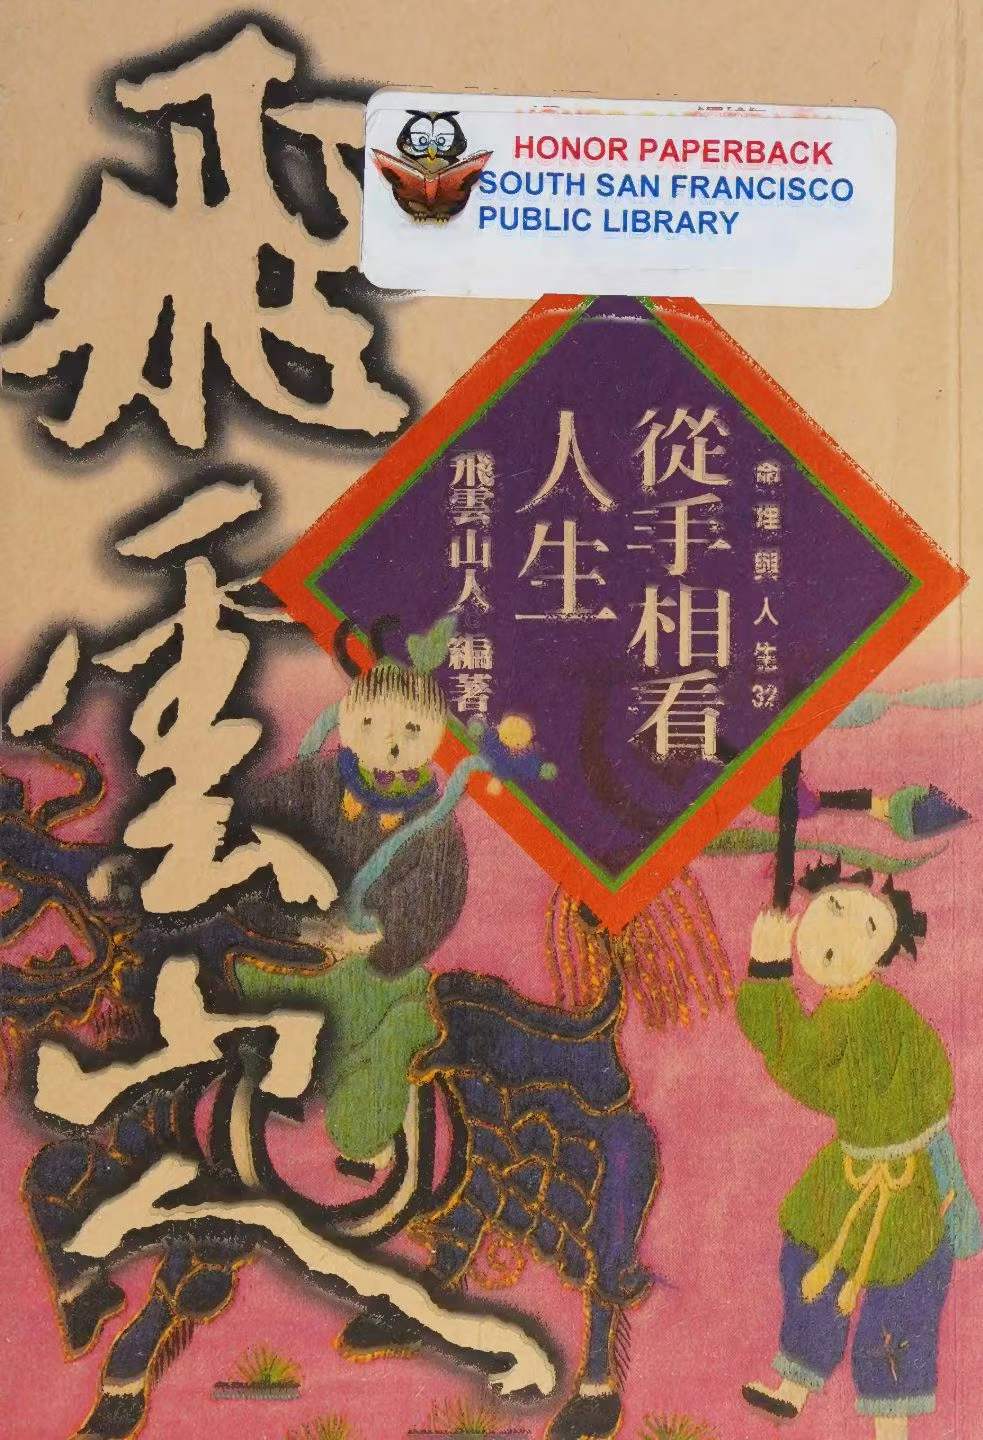 飛雲山人
HONOR PAPERBACK
SOUTH SAN FRANCISCO
PUBLIC LIBRARY
命理與人生32
從手相看
人生
飛雲山人 編著